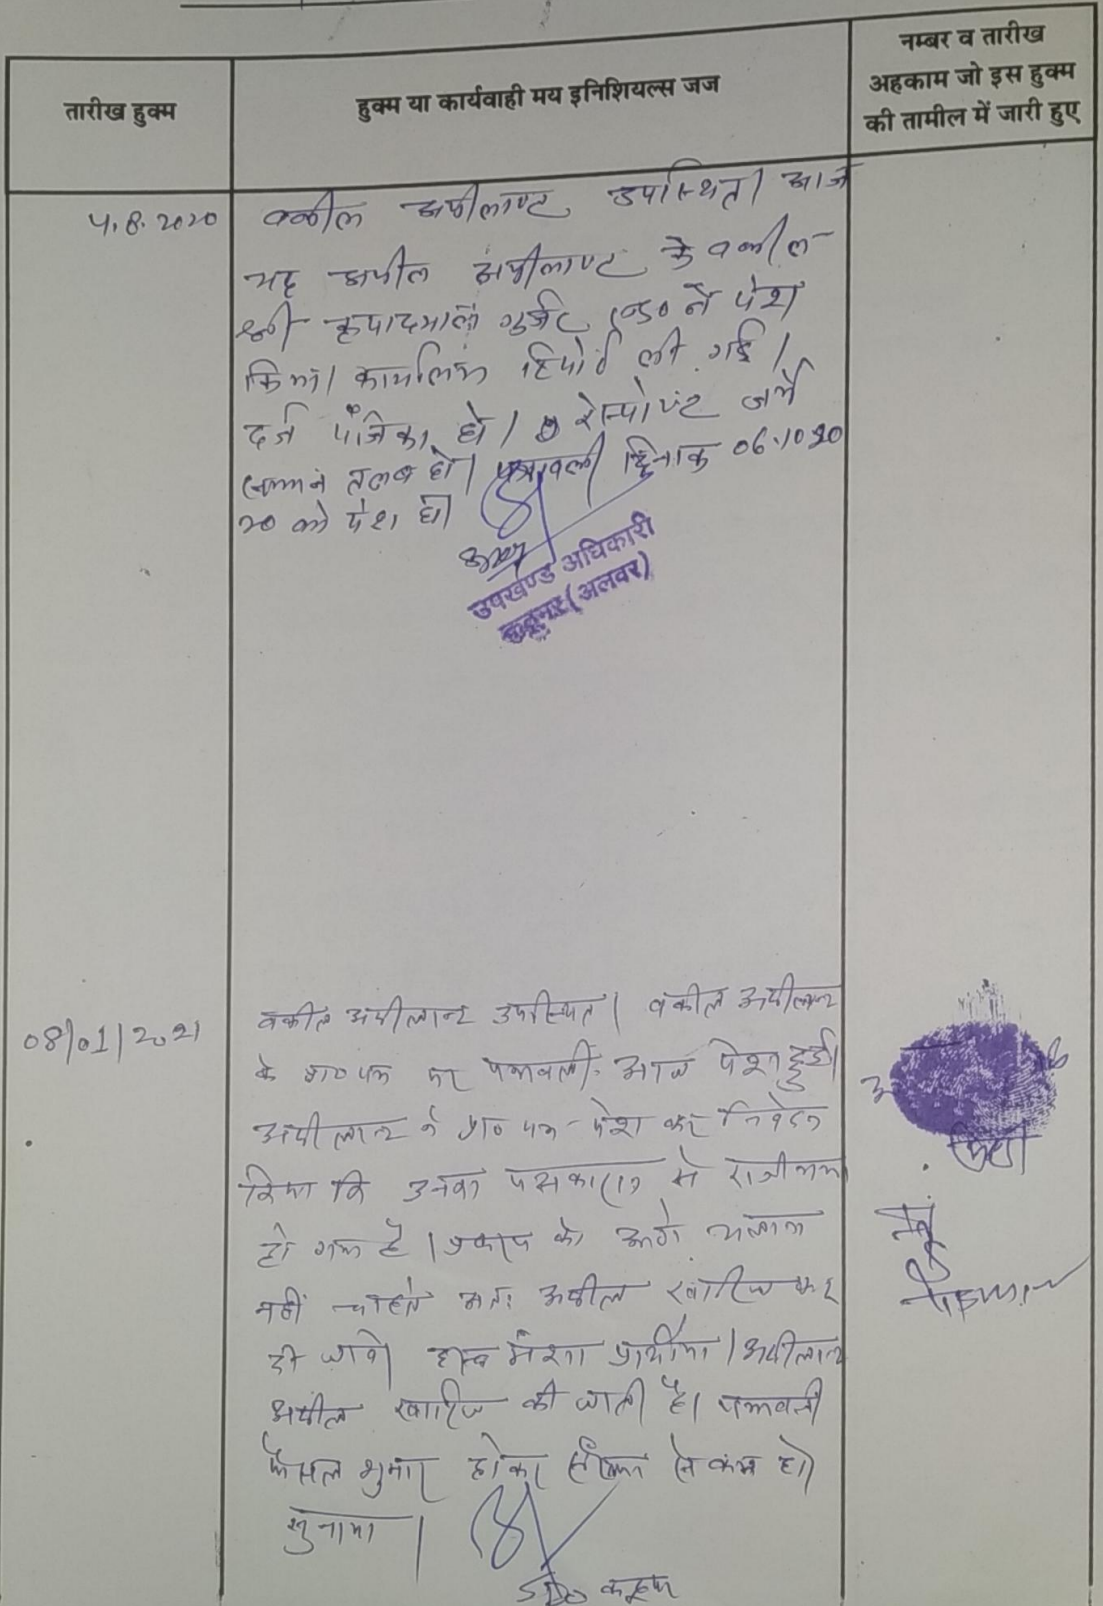 तारीख हुक्म
हुक्म या कार्यवाही मय इनिशियल्स जज
नम्बर व तारीख
अहकाम जो इस हुक्म
की तामील में जारी हुए
4.8.2020
वकील अपीलाण्ट उपस्थित। आज
यह अपील अपीलाण्ट के वकील
श्री गुर्जर एड० ने पेश
किया। कार्यालय रिपोर्ट ली गई।
दर्ज पंजिका हो। रेस्पोण्ट जर्ये
सम्मन तलब हो। पत्रावली दिनांक 06.10.20
20 को पेश हो।
उपखण्ड अधिकारी
कठूमर (अलवर)
08/01/2021
वकील अपीलान्ट उपस्थित। वकील अपीलान्ट
के प्रा० पत्र पर पत्रावली आज पेश हुई।
अपीलान्ट ने प्रा० पत्र पेश कर निवेदन
किया कि उनका पक्षकारान से राजीनामा
हो गया है। प्रकरण को आगे चलाना
नहीं चाहते अतः अपील खारिज कर
दी जावे। हस्ब मंशा प्रार्थीगण। अपीलान्ट
अपील खारिज की जाती है। पत्रावली
फैसल शुमार होकर नम्बर से कम हो।
सुनाया।
SDO कठूमर